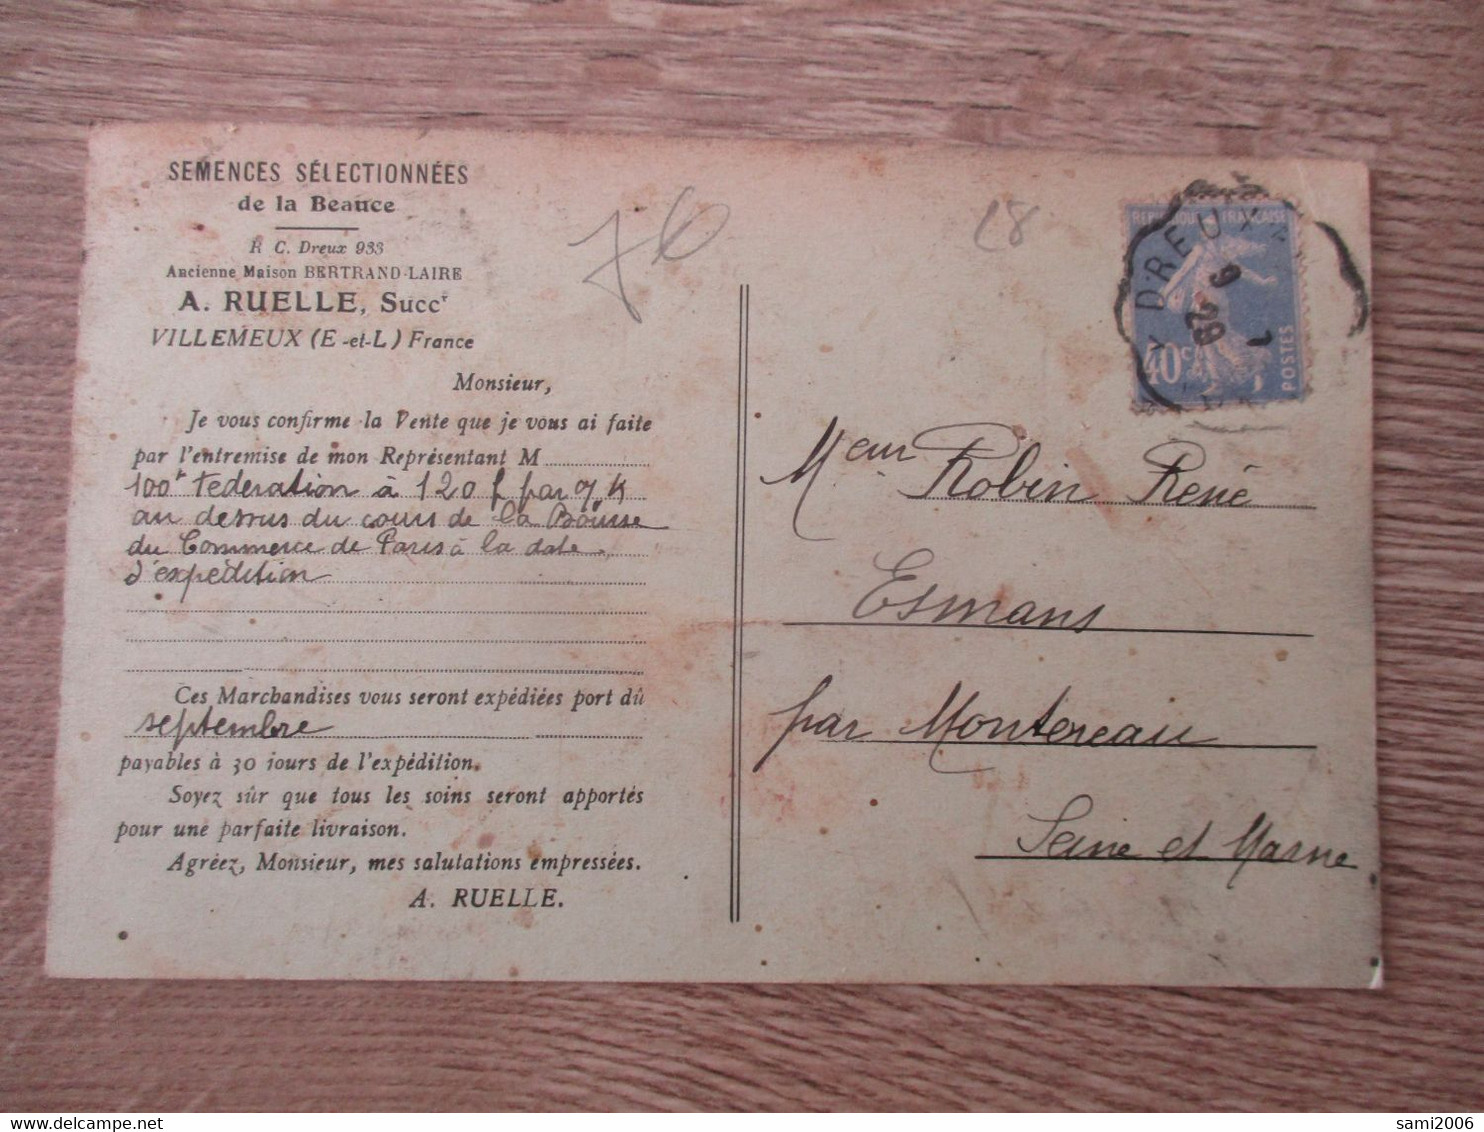 SEMENCES SÉLECTIONNÉES
de la Beauce
R C. Dreux 933
Ancienne Maison BERTRAND-LAIRE
A. RUELLE, Succr
VILLEMEUX (E-et-L) France
Monsieur,
Je vous confirme la Vente que je vous ai faite
par l'entremise de mon Représentant M
100 Federation à 120 f par
au dessus du cours de la Bourse
du Commerce de Paris à la date
d'expédition
Ces Marchandises vous seront expédiées port dû
septembre
payables à 30 jours de l'expédition.
Soyez sûr que tous les soins seront apportés
pour une parfaite livraison.
Agréez, Monsieur, mes salutations empressées.
A. RUELLE.
76
28
REPUBLIQUE FRANÇAISE
40c
POSTES
DREUX
9
29
Meur Robin René
Esmans
par Montereau
Seine et Marne
sami2006